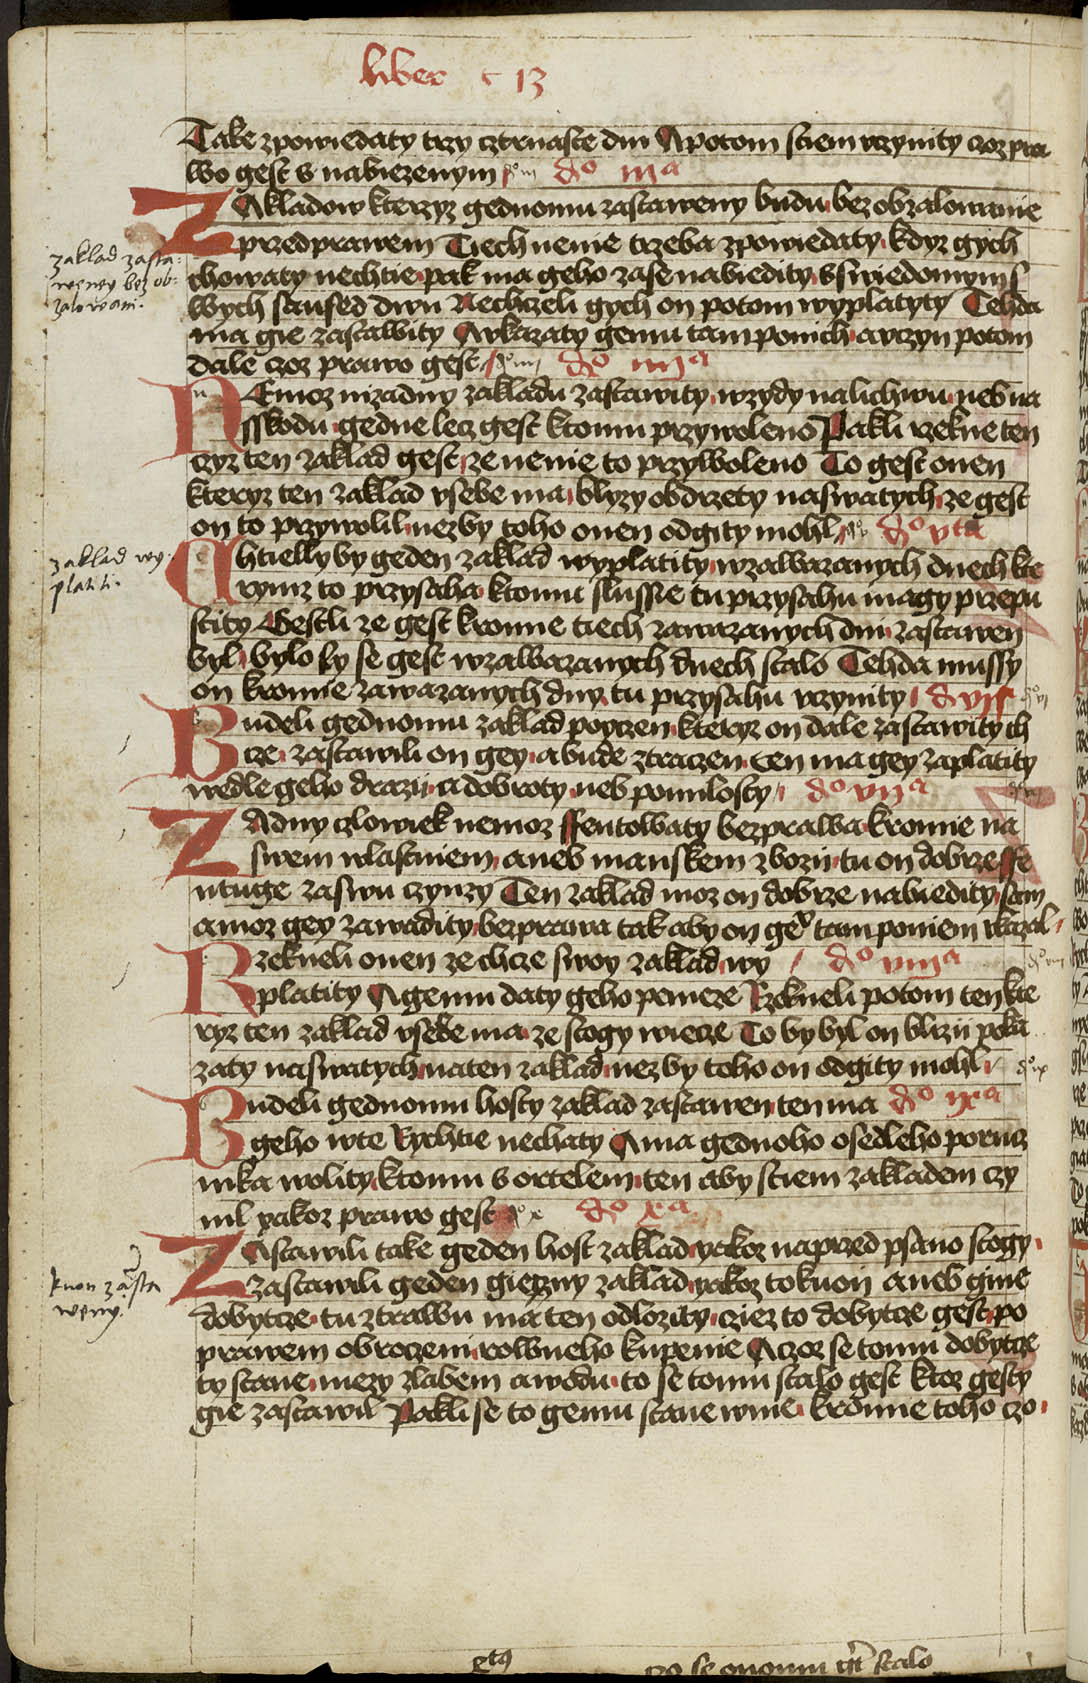 liber c 13
Take zpowiedaty trzy cztrnaste dni Apotom stiem vczynity czoz pra
wo gest s nabiezenym do iiia
ZAkladow kterzyz gednomu zastaweny budu bez obzalowanie
przed prawem Tiech nenie trzeba zpowiedaty kdyz gych
zaklad zasta:
weny bez ob:
zalowani.
chowaty nechtie pak ma geho zase nabiedity sswiedomym s
wych saused dwu Nechzeli gych on potom wyplatyty Tehda
ma gie zastawity Avkazaty gemu tam ponich avczyn potom
dale czoz prawo gest do iiiia
NEmoz nizadny zakladu zastawity wzydy nalichwu neb na
sskodu gedne lecz gest ktomu przywoleno Pakli rzekne ten
czyz ten zaklad gest ze nenie to przywoleno To gest onen
kteryz ten zaklad vsebe ma blyzy obdrzety naswatych ze gest
on to przywolil nezby toho onen odgity mohl do vta
zaklad wy
platiti.
Chtielly by geden zaklad wyplatity wzawazanych dnech kte
rymz to przysaha ktomu slusse tu przysahu magy przepu
stity Gestli ze gest kromie tiech zawazanych dni zastawen
byl bylo by se gest wzawazanych dnech stalo Tehda mussy
on kromie zawazanych dny tu przysahu vczynity
Budeli gednomu zaklad poyczen kteryz on dale zastawity ch
cze zastawili on gey abude ztraczen ten ma gey zaplatity
wedle geho drazii a dobroty neb pomilosty do viia
ZAdny czlowiek nemoz ssentowaty bezprawa kromie na
swem wlastniem aneb manskem zbozii tu on dobrze sse
ntuge zaswu czynzy Ten zaklad moz on dobrze nabiedity sam
amoz gey zawadity bezprawa tak aby on geo tam poniem vkazal
Rzekneli onen ze chcze swoy zaklad wy do viiia
platity Agemu daty geho penieze Rzekneli potom ten kte
ryz ten zaklad vsebe ma ze stogy wiecze To by byl on blizii poka
zaty naswatych naten zaklad nez by toho on odgity mohl
Budeli gednomu hosty zaklad zastawen ten ma do ixa
geho wte Rychtie nechaty Ama gednoho osedleho porucz
nika wolity ktomu s ortelem ten aby stiem zakladem czy
nil yakoz prawo gest do xa
ZAstawili take geden host zaklad yakoz naprzed psano stogy
kuon zasta
weny.
zastawili geden giezny zaklad yakoz tokuon aneb gine
dobytcze tu ztrawu ma ten odlozity cziez to dobytcze gest po
prawem obroczeni rowneho kupenie Aczoz se tomu dobytcze
ty stane mezy zlabem awodu to se tomu stalo gest ktoz gesty
gie zastawil Pakli se to gemu stane wnie kromie toho czo
czo se onomu stalo